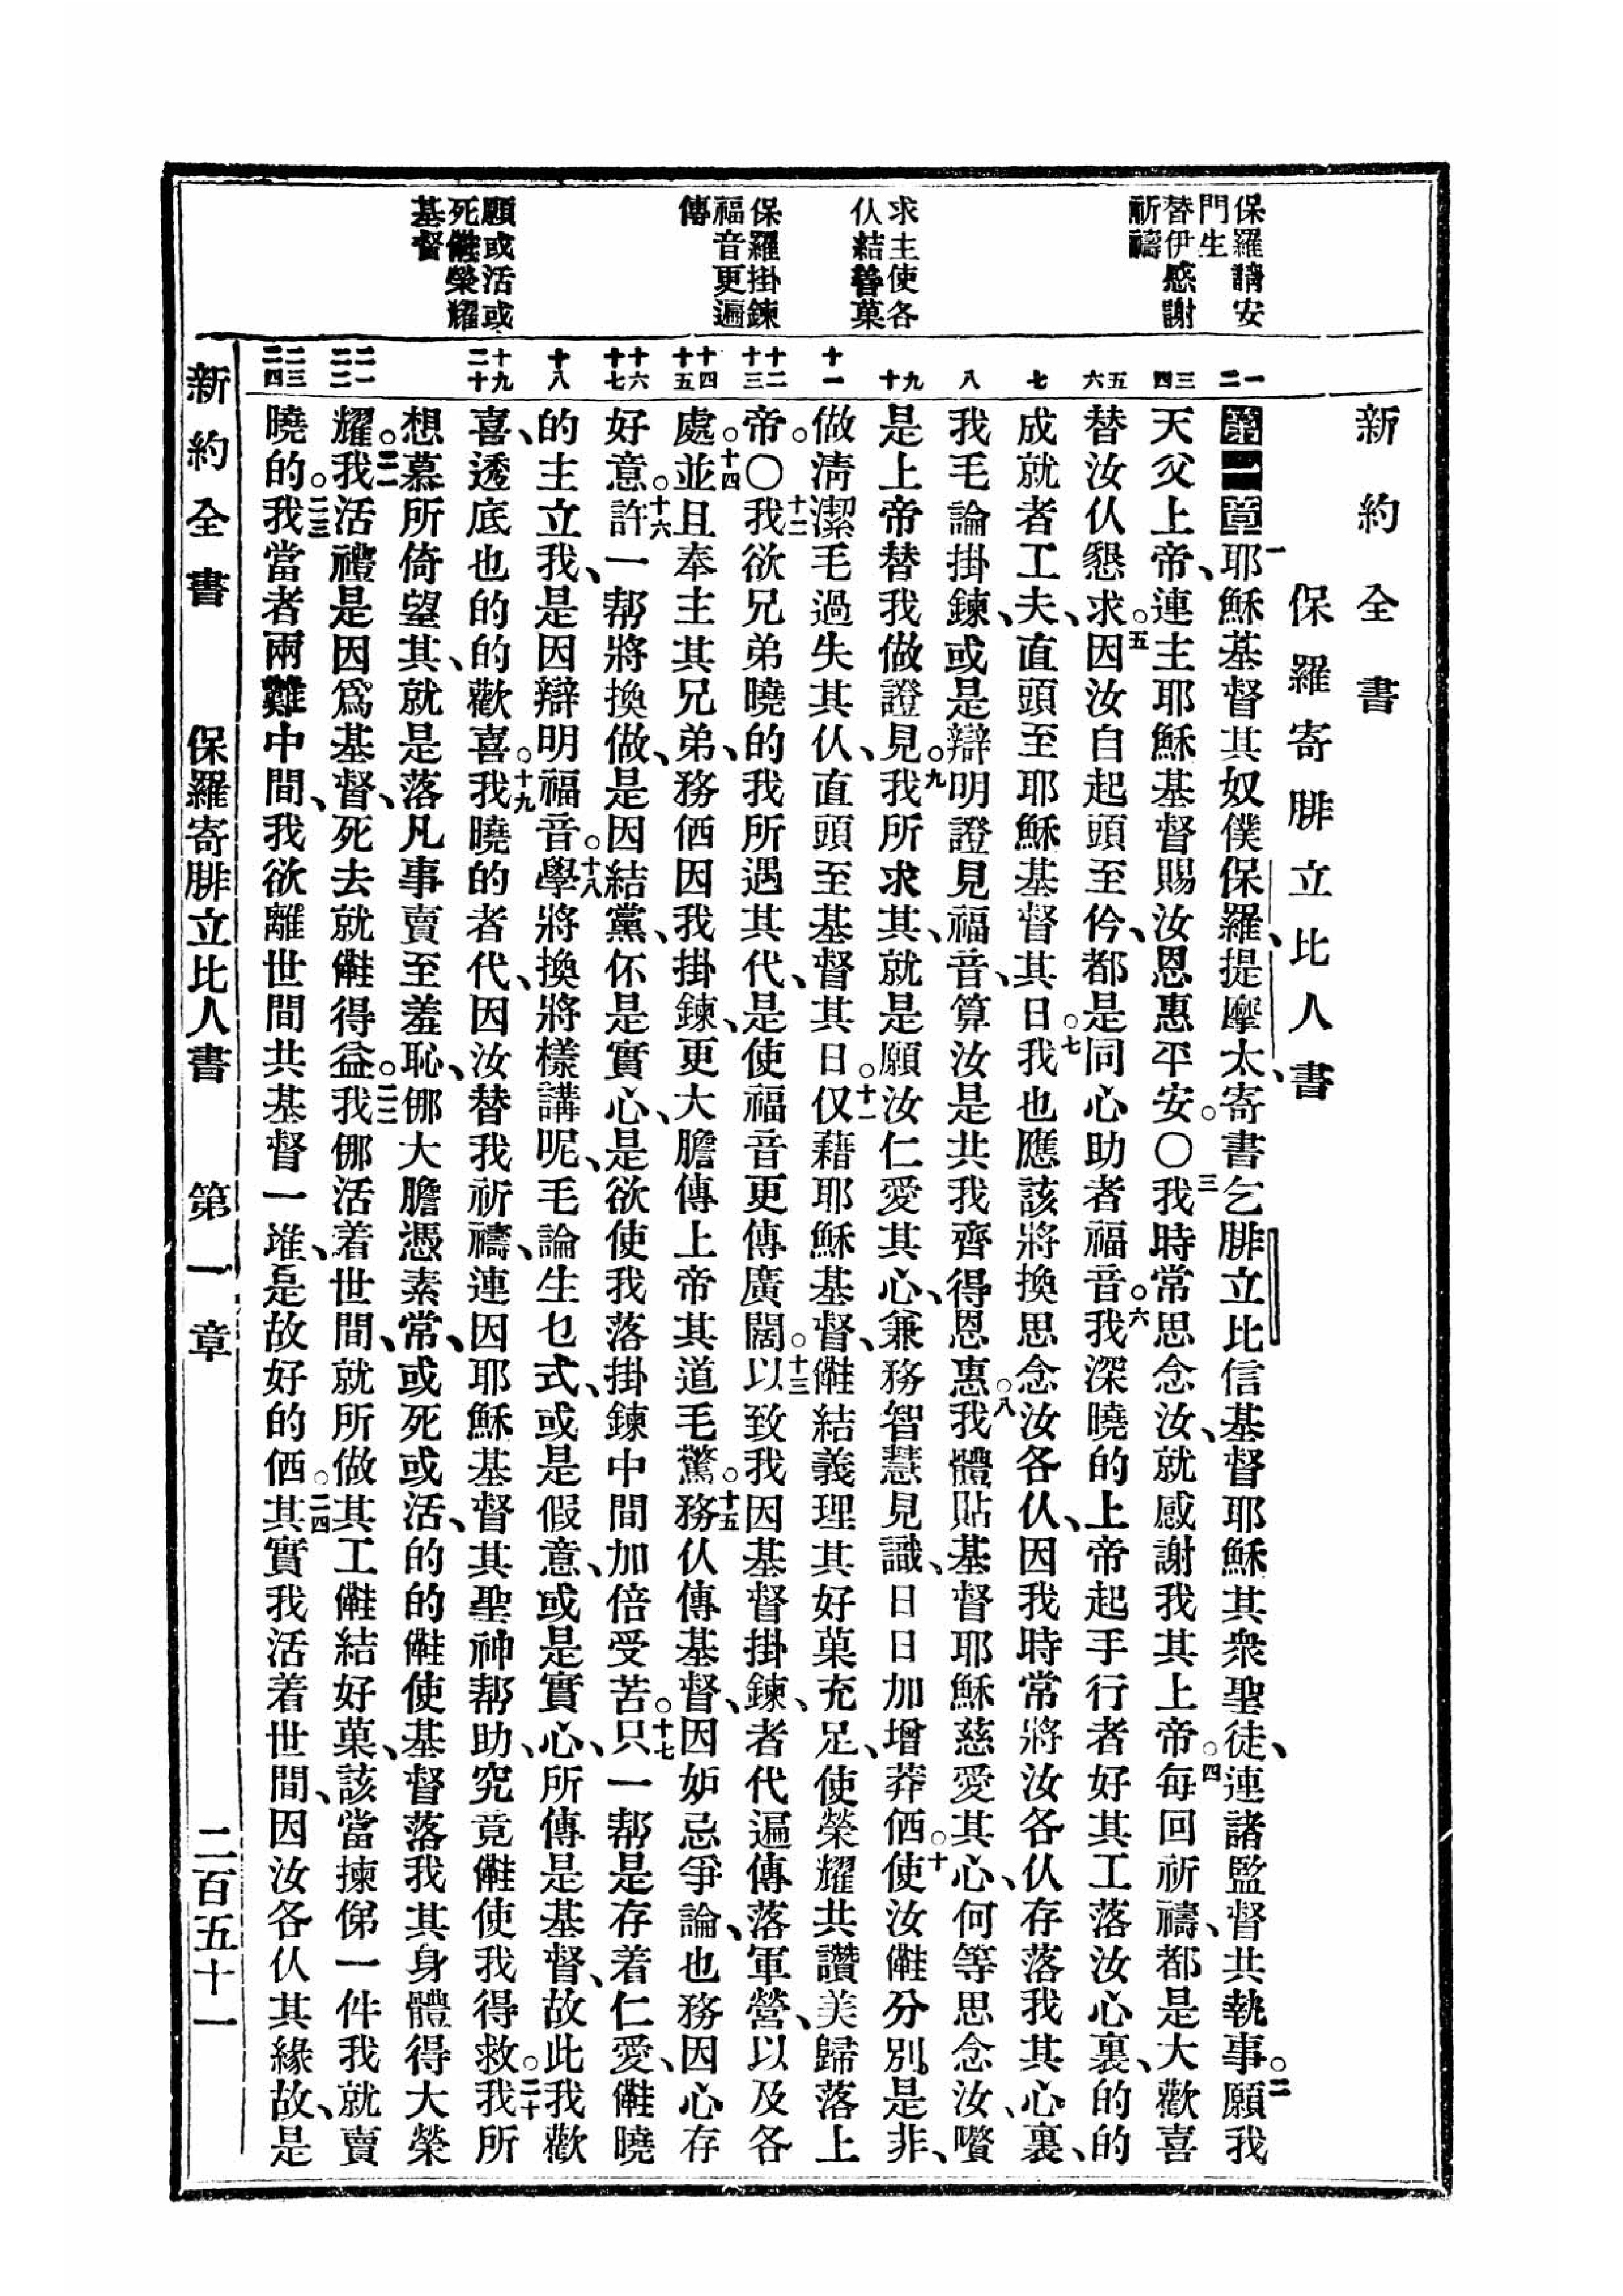 新約全書
保羅寄腓立比人書
保羅請安
門生
替伊感謝
祈禱
求主使各
仈結善菓
保羅掛鍊
福音更遍
傳
願或活或
死㑽榮耀
基督
一 二
三 四
五 六
七
八
九 十
十一
十二 十三
十四 十五
十六 十七
十八
十九 二十
二一 二二
二三 二四
第一章一耶穌基督其奴僕保羅、提摩太、寄書乞腓立比信基督耶穌其衆聖徒、連諸監督共執事。二願我
天父上帝、連主耶穌基督賜汝恩惠平安。〇三我時常思念汝、就感謝我其上帝。四每回祈禱、都是大歡喜
替汝仈懇求。五因汝自起頭至伶、都是同心助者福音。六我深曉的上帝起手行者好其工落汝心裏、的的
成就者工夫、直頭至耶穌基督其日。七我也應該將換思念汝各仈、因我時常將汝各仈存落我其心裏、
我毛論掛鍊、或是辯明證見福音、算汝是共我齊得恩惠。八我體貼基督耶穌慈愛其心、何等思念汝、嚽
是上帝替我做證見。九我所求其、就是願汝仁愛其心、兼務智慧見識、日日加增莽㒇。十使汝㑽分別是非、
做淸潔毛過失其仈、直頭至基督其日。十一仅藉耶穌基督、㑽結義理其好菓充足、使榮耀共讚美歸落上
帝。〇十二我欲兄弟曉的我所遇其代、是使福音更傳廣闊。十三以致我因基督掛鍊、者代遍傳落軍營、以及各
處。十四並且奉主其兄弟、務㒇因我掛鍊、更大膽傳上帝其道毛驚。十五務仈傳基督、因妒忌爭論、也務因心存
好意。十六許一帮將換做、是因結黨、伓是實心、是欲使我落掛鍊中間加倍受苦。十七只一帮是存着仁愛、㑽曉
的主立我、是因辯明福音。十八學將換將樣講呢、毛論生乜式、或是假意、或是實心、所傳是基督、故此我歡
喜、透底也的的歡喜。十九我曉的者代、因汝替我祈禱、連因耶穌基督其聖神帮助、究竟㑽使我得救。二十我所
想慕所倚望其、就是落凡事賣至羞恥、㑚大膽憑素常、或死或活、的的㑽使基督落我其身體得大榮
耀。二一我活禮是因爲基督、死去就㑽得益。二二我㑚活着世間、就所做其工㑽結好菓、該當揀俤一件我就賣
曉的。二三我當者兩難中間、我欲離世間共基督一堆、是故好的㒇。二四其實我活着世間、因汝各仈其緣故、是
新約全書 保羅寄腓立比人書 第一章 二百五十一